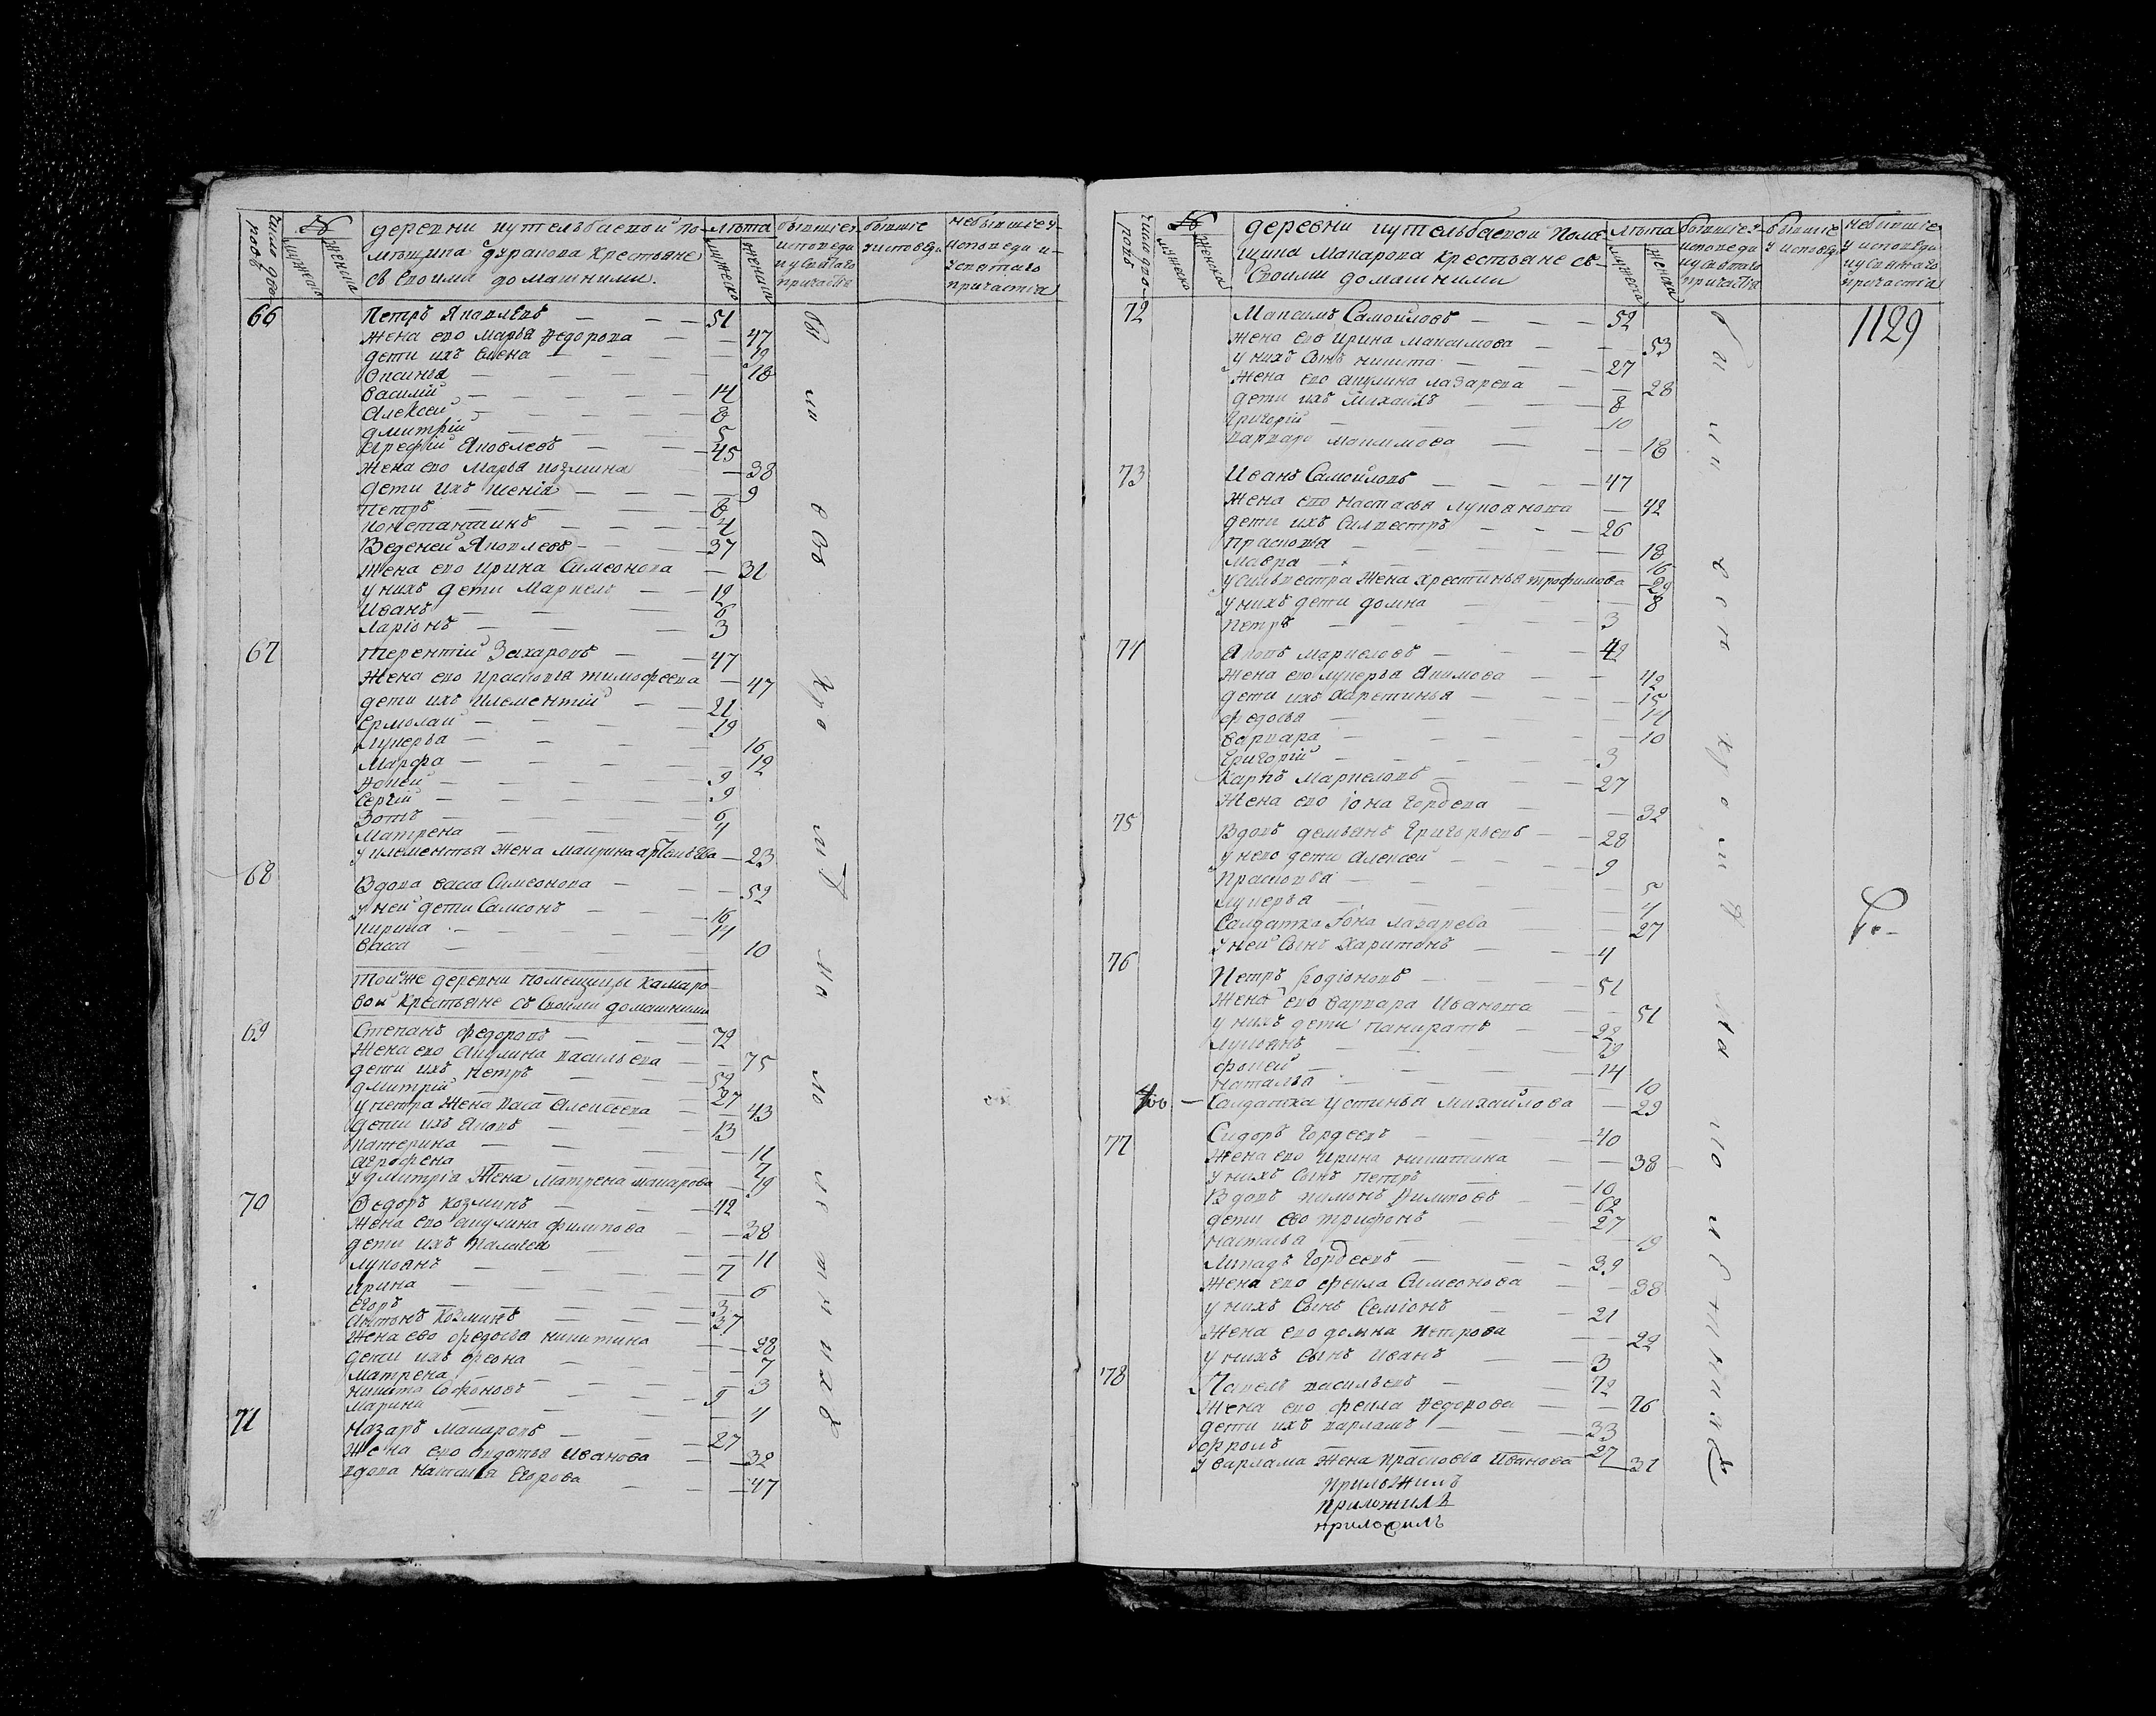 Число дворовъ
мужеско
женска
деревни кутельбаевой по-
мѣщика дуракова крестьяне
съ своими домашними.
лѣта
мужеско
женска
бывшіе у
исповеди
и у святаго
причастія
бывшіе
у исповѣди
небывшіе у
исповеди и
у святаго
причастія
66 Петръ Яковлевъ 51
жена ево марья федорова 47
дети ихъ елена 19
Оксинья 18
Василій 14
Алексей 8
дмитрій 5
Арефій Яковлевъ 45
жена ево марья козмина 38
дети ихъ ксенія 9
Петръ 8
константинъ 4
Веденей Яковлевъ 37
жена ево ирина симеонова 31
у нихъ дети маркелъ 12
Иванъ 6
ларіонъ 3
67 терентій Захаровъ 47
жена ево прасковья тимофеева 47
дети ихъ клементій 21
ермолай 19
лукерья 16
марфа 12
фокей 9
сергій 9
Зотъ 6
матрена 4
у клементья жена маирина 23
68 Вдова васса симеонова 52
у ней дети самсонъ 16
кирила 14
васса 10
той же деревни помещицы камаро-
вой крестьяне съ своими домашними
69 Степанъ федоровъ 72
жена ево акулина васильева 75
дети ихъ петръ 52
дмитрій 27
у петра жена васа алексеева 43
дети ихъ яковъ 13
катерина 11
агрофена 7
у дмитрія жена матрена макарова 19
70 Федоръ козминъ 42
жена ево акулина филипова 38
дети ихъ палагея 11
лукоянъ 7
ирина 6
егоръ 3
антонъ козминъ 37
жена ево федосья никитина 28
дети ихъ феона 7
матрена 3
никита софоновъ 9
марина 4
71 назаръ макаровъ 27
жена ево агафья иванова 32
вдова наталья егорова 47
Число дворовъ
мужеско
женска
деревни кутельбаевой поме-
щика макарова крестьяне съ
своими домашними
лѣта
мужеска
женска
бывшіе у
исповеди
и у святаго
причастія
бывшіе
у исповѣди
небывшіе
у исповѣди
и у святаго
причастія
1129
72 Максимъ Самойловъ 52
жена ево ирина максимова 53
у нихъ сынъ никита 27
жена ево акулина лазарева 28
дети ихъ михаилъ 8
григорій 10
варвара максимова 18
73 Иванъ Самойловъ 47
жена ево настасья лукоянова 42
дети ихъ силвестръ 26
прасковья 18
мавра 16
у силвестра жена хрестинья трофимова 29
у нихъ дети домна 8
петръ 3
74 Яковъ маркеловъ 42
жена ево лукерья якимова 42
дети ихъ харетинья 15
федосья 14
варвара 10
григорій 3
карпъ маркеловъ 27
жена ево іона гордева 32
75 Вдовъ демьянъ григорьевъ 28
у нево дети алексей 9
прасковья 5
лукерья 4
Салдатка іона лазарева 27
у ней сынъ харитонъ 4
76 Петръ родіоновъ 51
жена ево варвара иванова 51
у нихъ дети панкратъ 22
лукоянъ 19
фокей 14
наталья 10
Салдатка устинья михайлова 29
77 Сидоръ гордеевъ 40
жена ево ирина никитина 38
у нихъ сынъ петръ 10
Вдовъ филиповъ 62
дети ево трифонъ 27
наталья 19
гордеевъ 39
жена ево фекла симеонова 38
у нихъ сынъ семіонъ 21
жена ево домна петрова 22
у нихъ сынъ иванъ 3
78 Павелъ васильевъ 72
жена ево фекла федорова 76
дети ихъ варламъ 33
фролъ 27
у варлама жена прасковья иванова 31
приложилъ
приложилъ
приложилъ